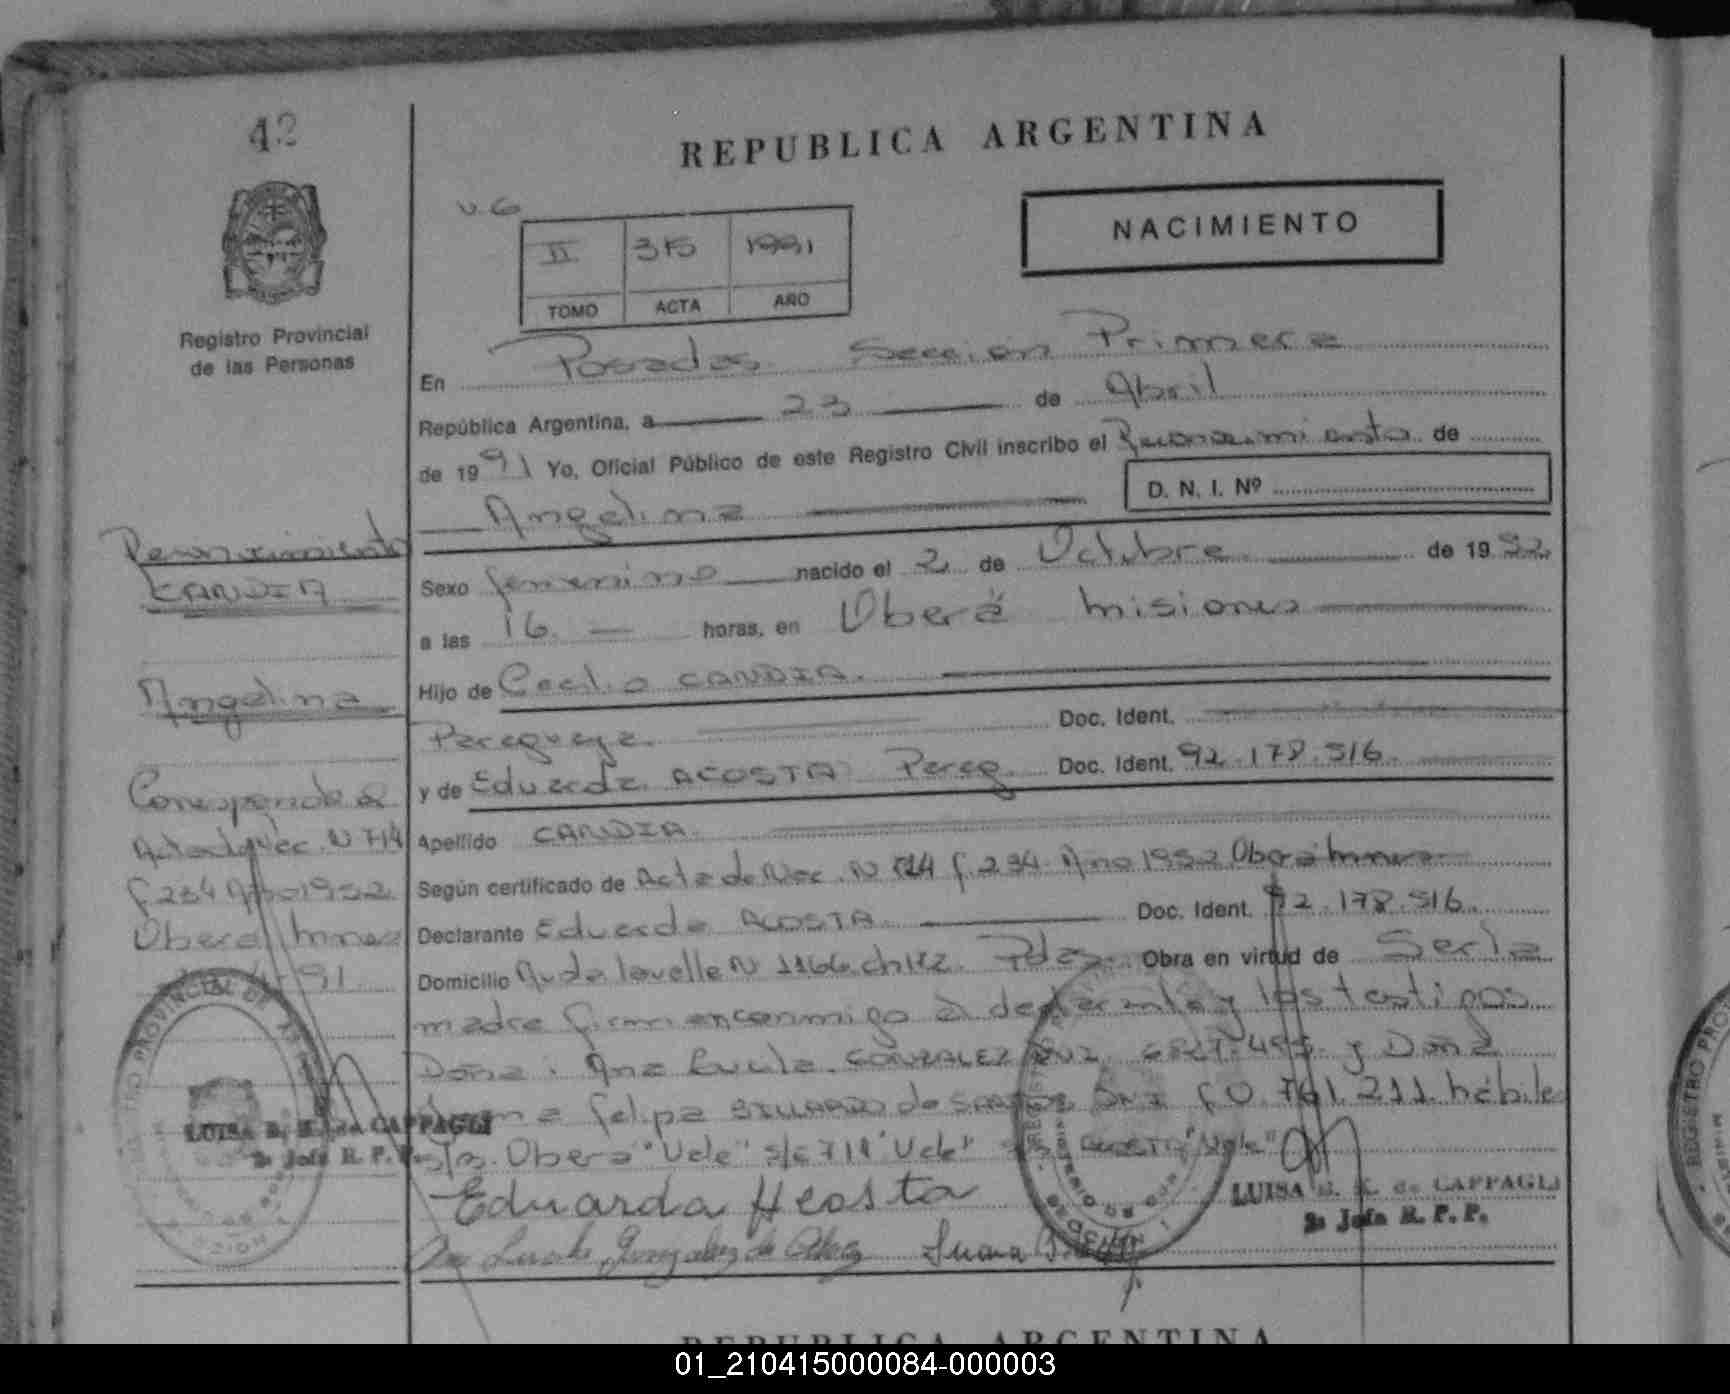 42
REPUBLICA ARGENTINA
Registro Provincial
de las Personas
II 315 1991
TOMO ACTA AÑO
NACIMIENTO
En Posadas Sección Primera
República Argentina, a 23 de Abril
de 1991 Yo, Oficial Público de este Registro Civil inscribo el Reconocimiento de
Angelina D. N. I. Nº
Reconocimiento
CANDIA
Angelina
Corresponde al
Acta de Nac. N 714
f 234 Año 1952
Oberá Mnes
91
Sexo femenino nacido el 2 de Octubre de 1952
a las 16 horas, en Oberá Misiones
Hijo de Cecilio CANDIA.
Paraguaya. Doc. Ident.
y de Eduarda ACOSTA Parag. Doc. Ident. 92.178.516
Apellido CANDIA
Según certificado de Acta de Nac. N 714 f 234 Año 1952 Oberá Mnes
Declarante Eduarda ACOSTA Doc. Ident. 92.178.516
Domicilio Avda Lavalle N 1166 ch 112 Pdas. Obra en virtud de Ser la
madre firman conmigo la declarante y los testigos
Doña: Ana Lucila GONZALEZ y Doña
Felipa de DNI F 0.761.211 hábiles
s/r. Oberá "Vale" s/e 714 "Vale" ACOSTA "Vale"
Eduarda Acosta
LUISA E. K. de CAPPAGLI
2a Jefa R. P. P.
LUISA E. K. de CAPPAGLI
2a Jefa R. P. P.
REPUBLICA ARGENTINA
01_210415000084-000003